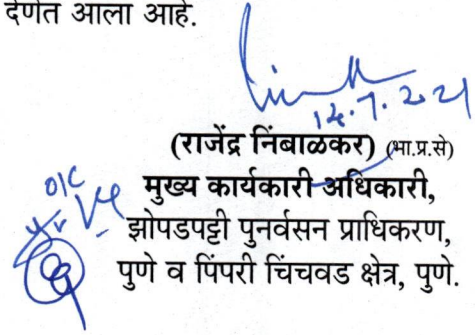 देणेत आला आहे.
14.7.2021
(राजेंद्र निंबाळकर) (भा.प्र.से)
मुख्य कार्यकारी अधिकारी,
o/c
झोपडपट्टी पुनर्वसन प्राधिकरण,
पुणे व पिंपरी चिंचवड क्षेत्र, पुणे.